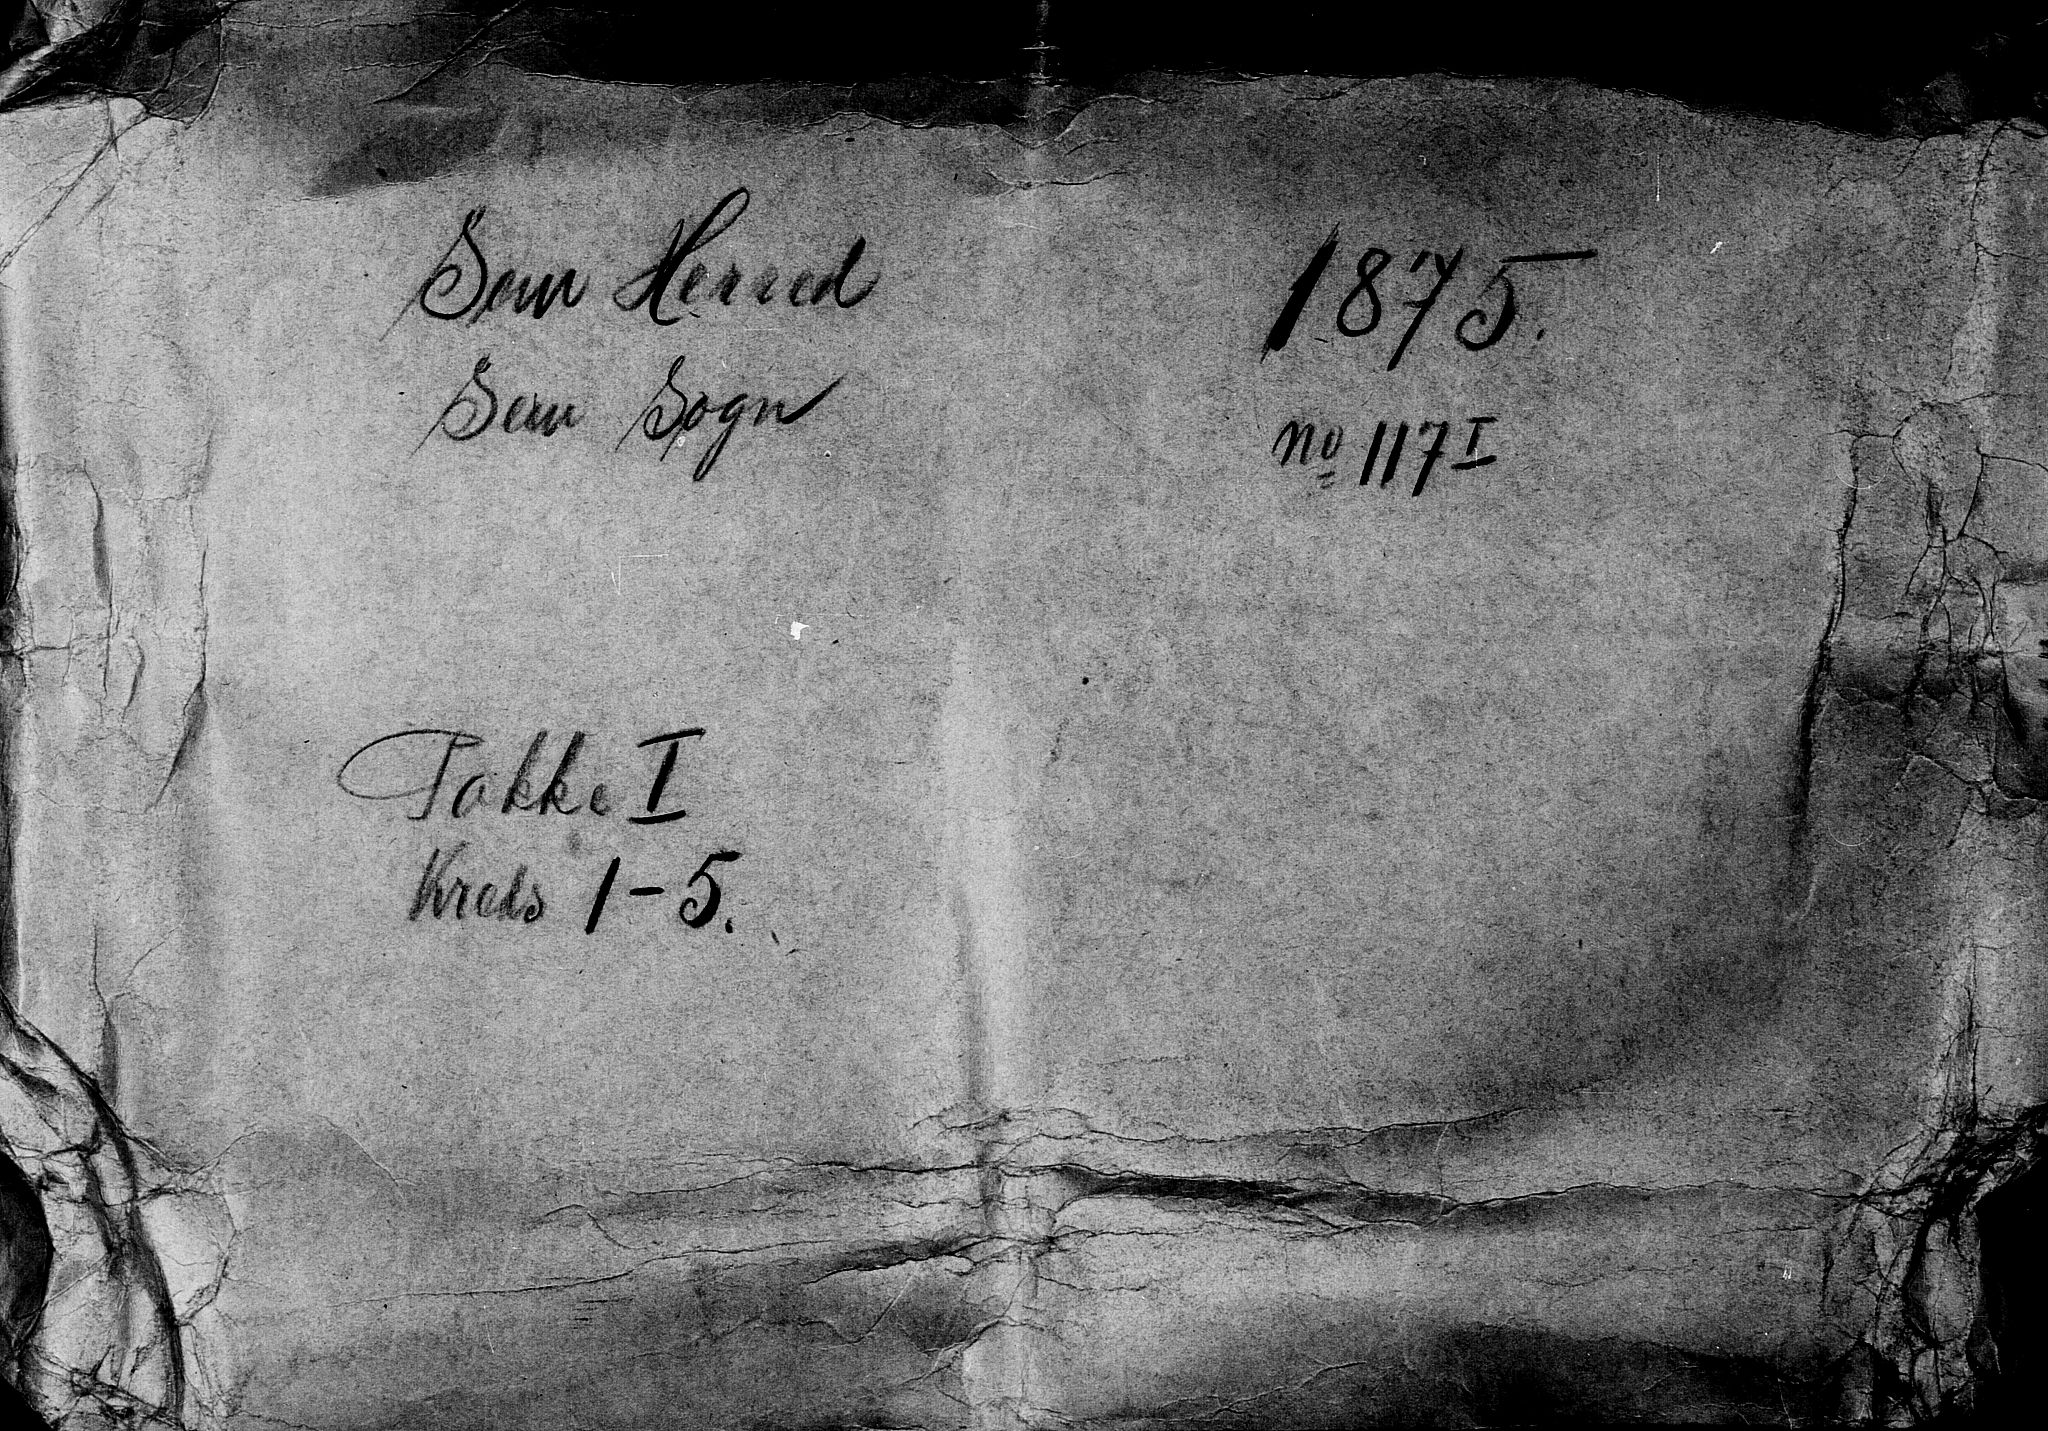 Sem Herred
Sem Sogn
1875.
No 117 I
Pakke I
Kreds 1-5.